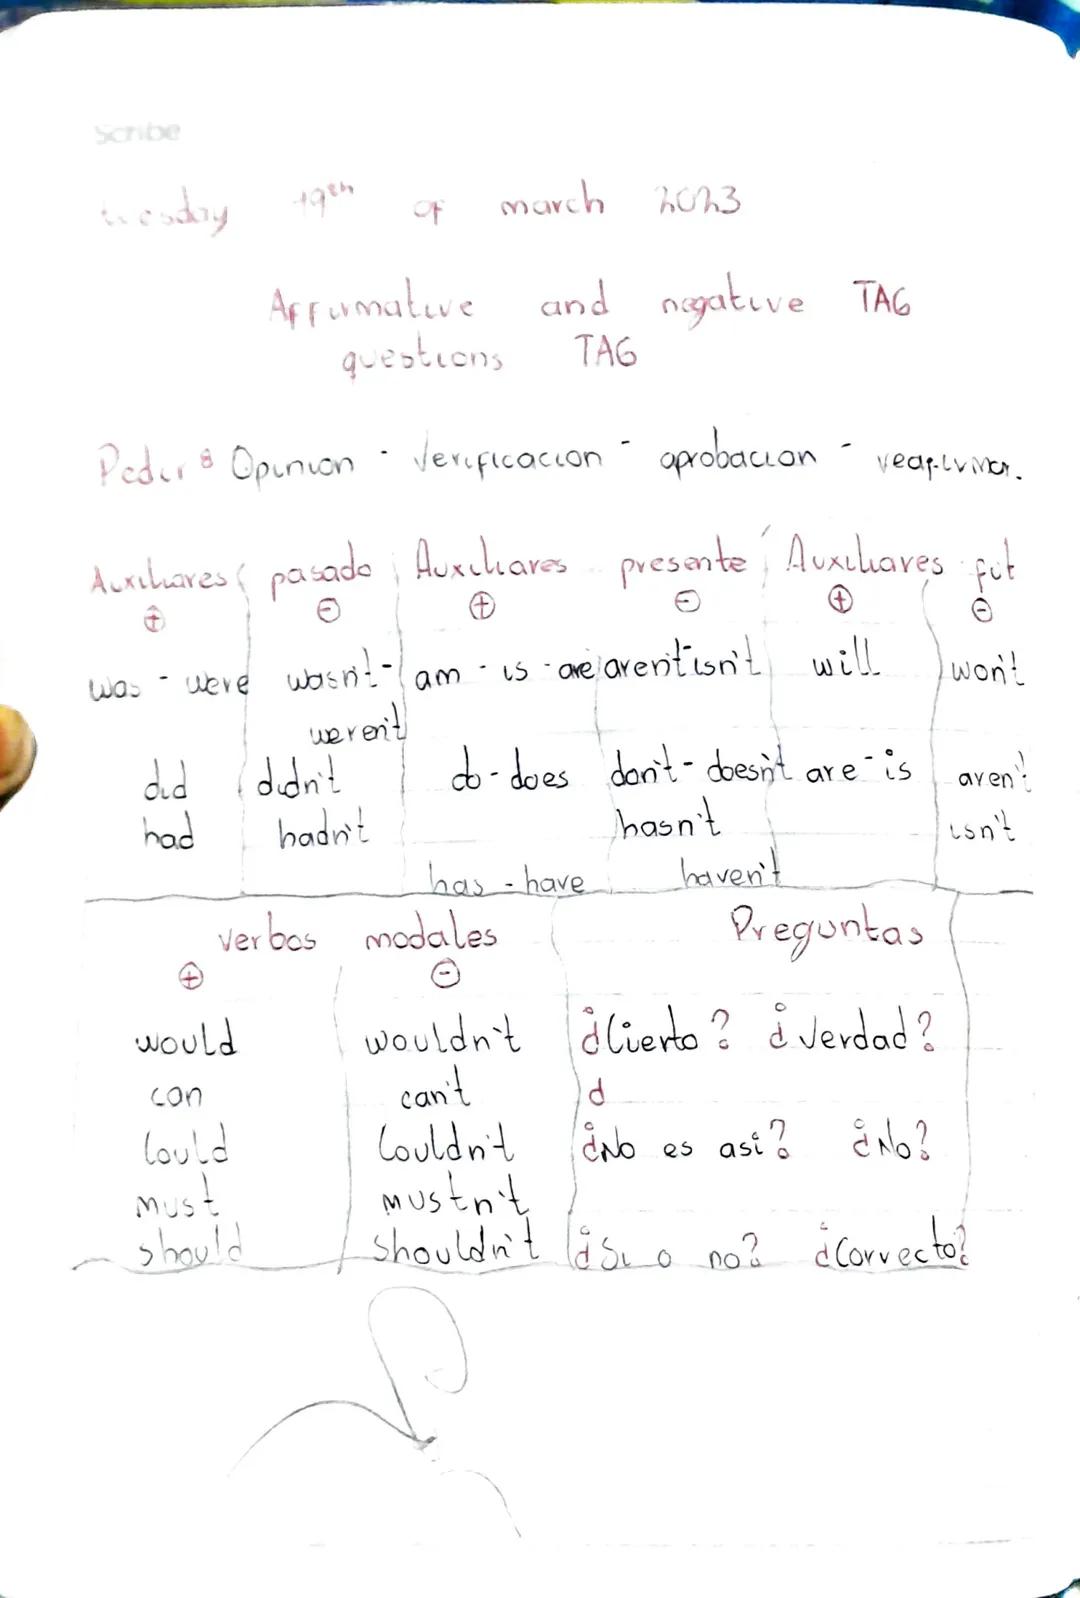 Scribe
tuesday 19th of march 2023
Affirmative and negative TAG
questions TAG
Pedir: Opinion - Verificacion - aprobacion -
Auxiliares pasado Auxiliares presente Auxiliares fut
+ - + - + -
was - were wasn't - am - is - are aren't isn't will won't
weren't
did didn't do - does don't - doesn't are - is aren't
had hadn't hasn't isn't
has - have haven't
verbos modales Preguntas
+ -
would wouldn't ¿Cierto? ¿verdad?
can can't d
Could Couldn't ¿No es asi? ¿No?
must mustn't
should shouldn't ¿Si o no? ¿Correcto?